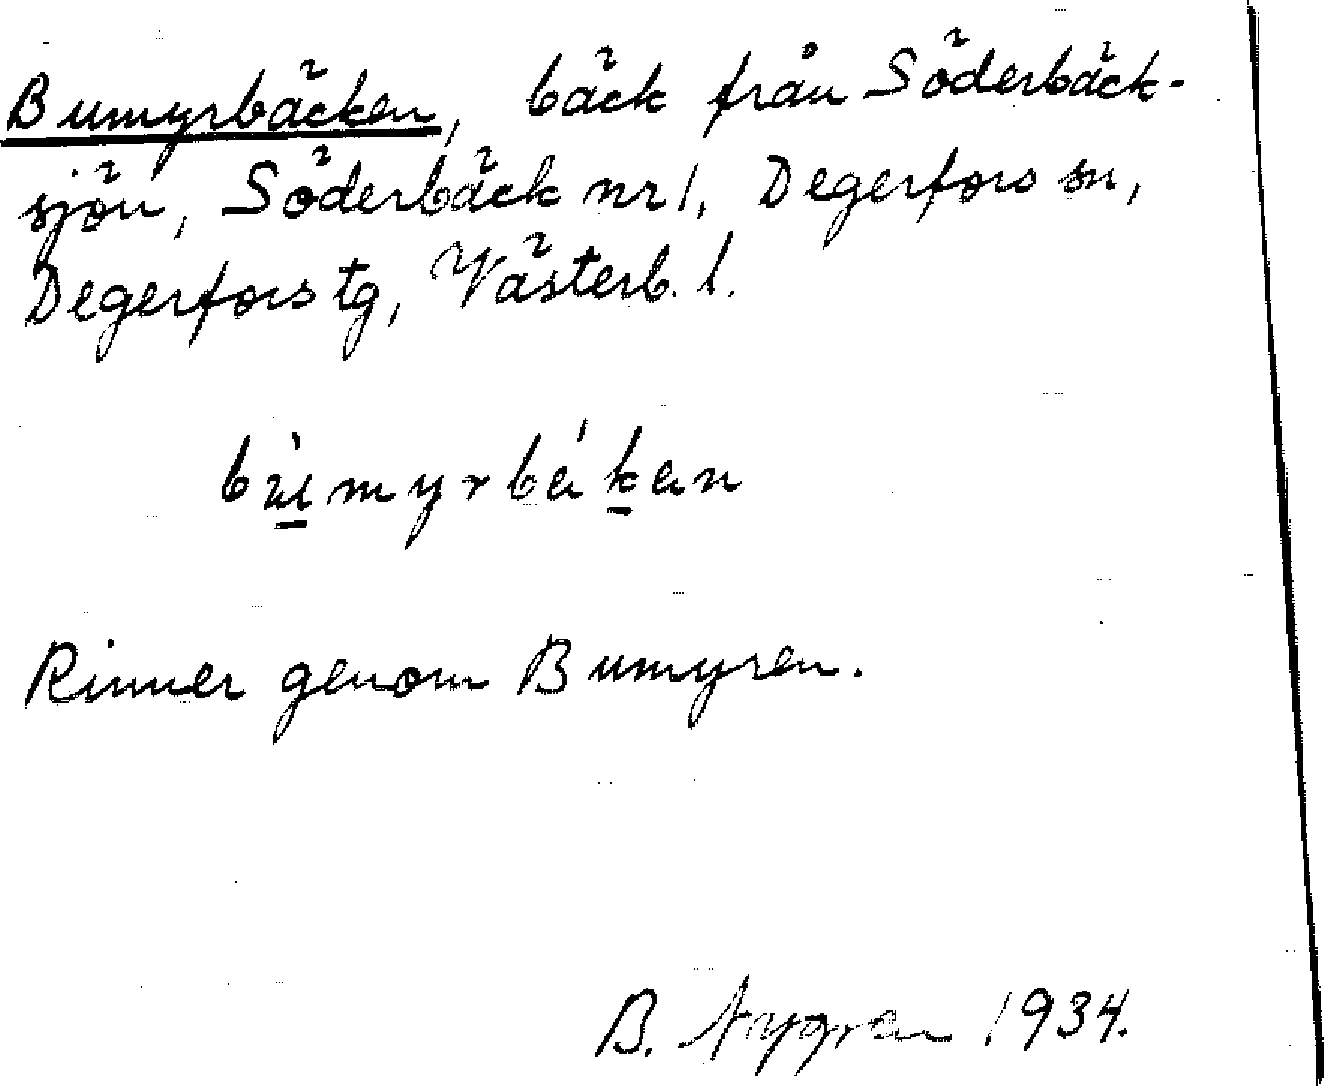 Bumyrbäcken, bäck från Söderbäck-
sjön, Söderbäck nr 1, Degerfors sn,
Degerfors tg, Västerb. l.
bùmyrbákan
Rinner genom Bumyren.
B. Nygren 1934.